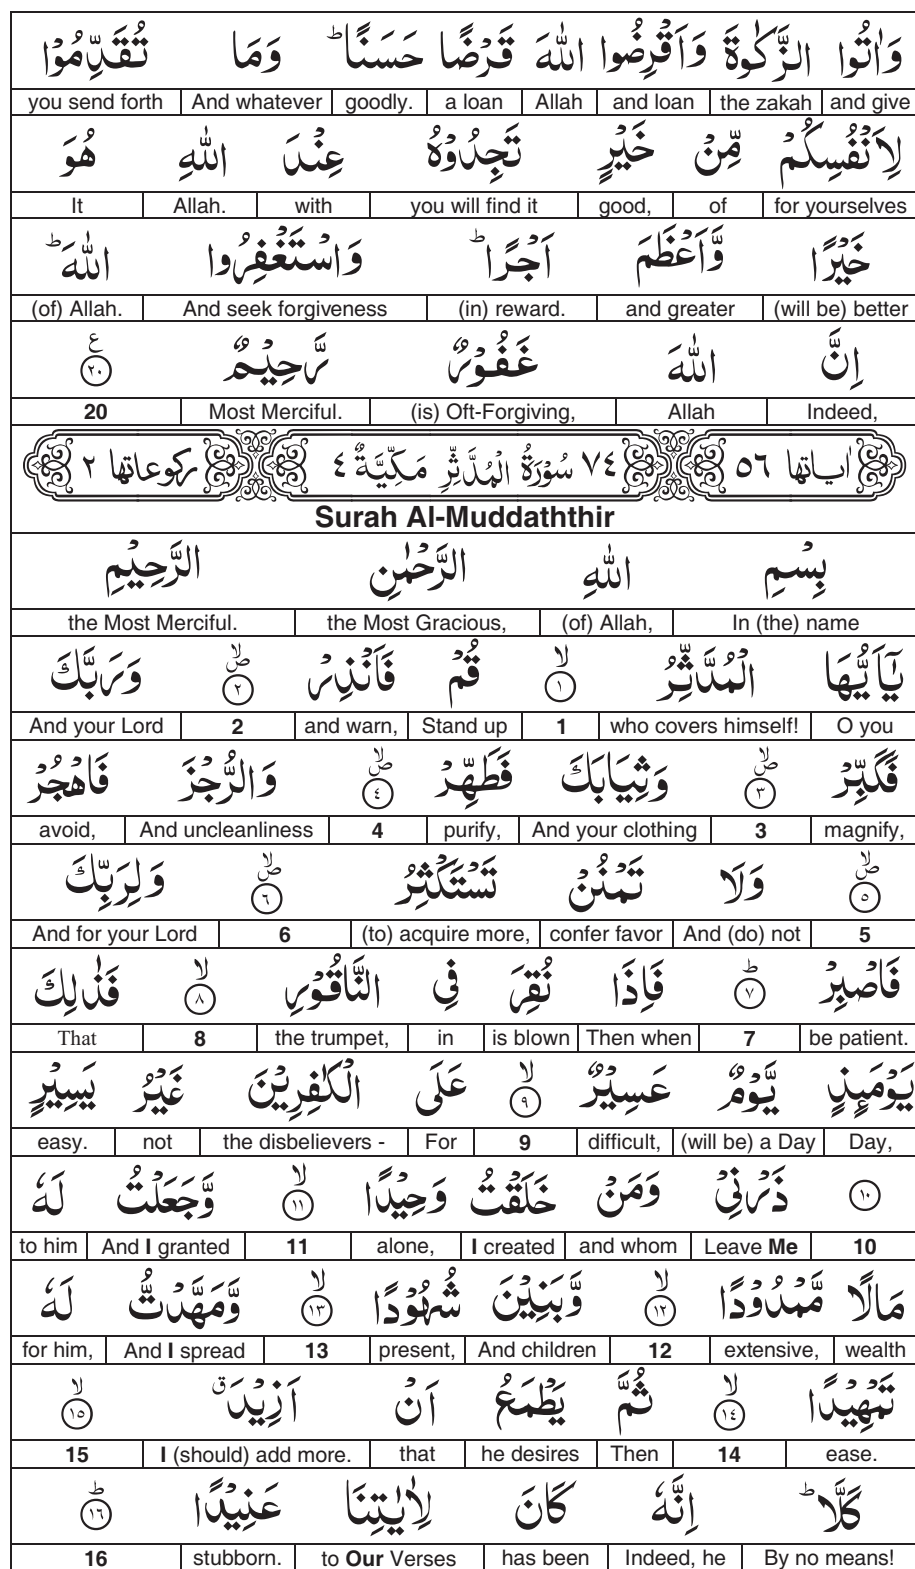 وَاٰتُوا الزَّكٰوةَ وَاَقْرِضُوا اللّٰهَ قَرْضًا حَسَنًا ؕ وَمَا تُقَدِّمُوْا
and give | the zakah | and loan | Allah | a loan | goodly. | And whatever | you send forth
لِاَنْفُسِكُمْ مِّنْ خَيْرٍ تَجِدُوْهُ عِنْدَ اللّٰهِ هُوَ
for yourselves | of | good, | you will find it | with | Allah. | It
خَيْرًا وَّاَعْظَمَ اَجْرًا ؕ وَاسْتَغْفِرُوا اللّٰهَ ؕ
(will be) better | and greater | (in) reward. | And seek forgiveness | (of) Allah.
اِنَّ اللّٰهَ غَفُوْرٌ رَّحِيْمٌ ٢٠ ع
Indeed, | Allah | (is) Oft-Forgiving, | Most Merciful. | 20
اٰياتها ٥٦ ٧٤ سُوْرَةُ الْمُدَّثِّرِ مَكِّيَّةٌ ٤ ركوعاتها ٢
Surah Al-Muddaththir
بِسْمِ اللّٰهِ الرَّحْمٰنِ الرَّحِيْمِ
In (the) name | (of) Allah, | the Most Gracious, | the Most Merciful.
يٰۤاَيُّهَا الْمُدَّثِّرُ ۙ ١ قُمْ فَاَنْذِرْ ۪ۙ ٢ وَرَبَّكَ
O you | who covers himself! | 1 | Stand up | and warn, | 2 | And your Lord
فَكَبِّرْ ۪ۙ ٣ وَثِيَابَكَ فَطَهِّرْ ۪ۙ ٤ وَالرُّجْزَ فَاهْجُرْ
magnify, | 3 | And your clothing | purify, | 4 | And uncleanliness | avoid,
۪ۙ ٥ وَلَا تَمْنُنْ تَسْتَكْثِرُ ۪ۙ ٦ وَلِرَبِّكَ
5 | And (do) not | confer favor | (to) acquire more, | 6 | And for your Lord
فَاصْبِرْ ؕ ٧ فَاِذَا نُقِرَ فِي النَّاقُوْرِ ۙ ٨ فَذٰلِكَ
be patient. | 7 | Then when | is blown | in | the trumpet, | 8 | That
يَوْمَىِٕذٍ يَّوْمٌ عَسِيْرٌ ۙ ٩ عَلَى الْكٰفِرِيْنَ غَيْرُ يَسِيْرٍ
Day, | (will be) a Day | difficult, | 9 | For | the disbelievers - | not | easy.
١٠ ذَرْنِيْ وَمَنْ خَلَقْتُ وَحِيْدًا ۙ ١١ وَّجَعَلْتُ لَهٗ
10 | Leave Me | and whom | I created | alone, | 11 | And I granted | to him
مَالًا مَّمْدُوْدًا ۙ ١٢ وَّبَنِيْنَ شُهُوْدًا ۙ ١٣ وَّمَهَّدْتُّ لَهٗ
wealth | extensive, | 12 | And children | present, | 13 | And I spread | for him,
تَمْهِيْدًا ۙ ١٤ ثُمَّ يَطْمَعُ اَنْ اَزِيْدَ ۗ ۙ ١٥
ease. | 14 | Then | he desires | that | I (should) add more. | 15
كَلَّا ؕ اِنَّهٗ كَانَ لِاٰيٰتِنَا عَنِيْدًا ؕ ١٦
By no means! | Indeed, he | has been | to Our Verses | stubborn. | 16